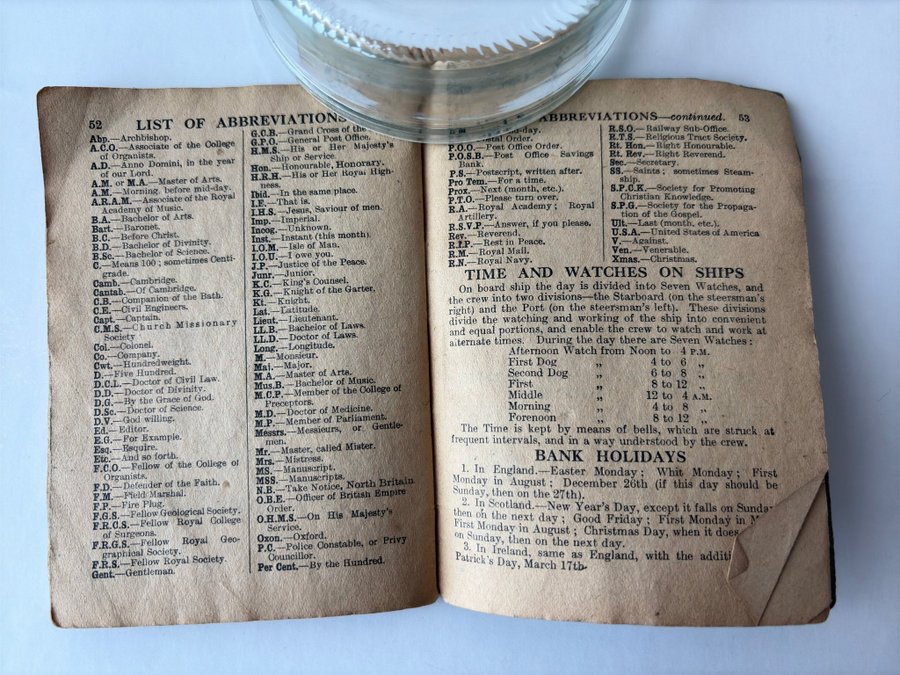 52 LIST OF ABBREVIATIONS
Abp.—Archbishop.
A.C.O.—Associate of the College
of Organists.
A.D.—Anno Domini, in the year
of our Lord.
A.M. or M.A.—Master of Arts.
A.M.—Morning, before mid-day.
A.R.A.M.—Associate of the Royal
Academy of Music.
B.A.—Bachelor of Arts.
Bart.—Baronet.
B.C.—Before Christ.
B.D.—Bachelor of Divinity.
B.Sc.—Bachelor of Science.
C.—Means 100; sometimes Centi-
grade.
Camb.—Cambridge.
Cantab.—Of Cambridge.
C.B.—Companion of the Bath.
C.E.—Civil Engineers.
Capt.—Captain.
C.M.S.—Church Missionary
Society
Col.—Colonel.
Co.—Company.
Cwt.—Hundredweight.
D.—Five Hundred.
D.C.L.—Doctor of Civil Law.
D.D.—Doctor of Divinity.
D.G.—By the Grace of God.
D.Sc.—Doctor of Science.
D.V.—God willing.
Ed.—Editor.
E.G.—For Example.
Esq.—Esquire.
Etc.—And so forth.
F.C.O.—Fellow of the College of
Organists.
F.D.—Defender of the Faith.
F.M.—Field Marshal.
F.P.—Fire Plug.
F.G.S.—Fellow Geological Society.
F.R.C.S.—Fellow Royal College
of Surgeons.
F.R.G.S.—Fellow Royal Geo-
graphical Society.
F.R.S.—Fellow Royal Society.
Gent.—Gentleman.
G.C.B.—Grand Cross of the
G.P.O.—General Post Office.
H.M.S.—His or Her Majesty's
Ship or Service.
Hon.—Honourable, Honorary.
H.R.H.—His or Her Royal High-
ness.
Ibid.—In the same place.
I.E.—That is.
I.H.S.—Jesus, Saviour of men.
Imp.—Imperial.
Incog.—Unknown.
Inst.—Instant (this month).
I.O.M.—Isle of Man.
I.O.U.—I owe you.
J.P.—Justice of the Peace.
Junr.—Junior.
K.C.—King's Counsel.
K.G.—Knight of the Garter.
Kt.—Knight.
Lat.—Latitude.
Lieut.—Lieutenant.
LL.B.—Bachelor of Laws.
LL.D.—Doctor of Laws.
Long.—Longitude.
M.—Monsieur.
Maj.—Major.
M.A.—Master of Arts.
Mus.B.—Bachelor of Music.
M.C.P.—Member of the College of
Preceptors.
M.D.—Doctor of Medicine.
M.P.—Member of Parliament.
Messrs.—Messieurs, or Gentle-
men.
Mr.—Master, called Mister.
Mrs.—Mistress.
MS.—Manuscript.
MSS.—Manuscripts.
N.B.—Take Notice, North Britain.
O.B.E.—Officer of British Empire
Order.
O.H.M.S.—On His Majesty's
Service.
Oxon.—Oxford.
P.C.—Police Constable, or Privy
Councillor.
Per Cent.—By the Hundred.
ABBREVIATIONS—continued. 53
Order.
P.O.O.—Post Office Order.
P.O.S.B.—Post Office Savings
Bank.
P.S.—Postscript, written after.
Pro Tem.—For a time.
Prox.—Next (month, etc.).
P.T.O.—Please turn over.
R.A.—Royal Academy; Royal
Artillery.
R.S.V.P.—Answer, if you please.
Rev.—Reverend.
R.I.P.—Rest in Peace.
R.M.—Royal Mail.
R.N.—Royal Navy.
R.S.O.—Railway Sub-Office.
R.T.S.—Religious Tract Society.
Rt. Hon.—Right Honourable.
Rt. Rev.—Right Reverend.
Sec.—Secretary.
SS.—Saints; sometimes Steam-
ship.
S.P.C.K.—Society for Promoting
Christian Knowledge.
S.P.G.—Society for the Propaga-
tion of the Gospel.
Ult.—Last (month, etc.).
U.S.A.—United States of America
V.—Against.
Ven.—Venerable.
Xmas.—Christmas.
TIME AND WATCHES ON SHIPS
On board ship the day is divided into Seven Watches, and
the crew into two divisions—the Starboard (on the steersman's
right) and the Port (on the steersman's left). These divisions
divide the watching and working of the ship into convenient
and equal portions, and enable the crew to watch and work at
alternate times. During the day there are Seven Watches:
Afternoon Watch from Noon to 4 P.M.
First Dog „ 4 to 6 „
Second Dog „ 6 to 8 „
First „ 8 to 12 „
Middle „ 12 to 4 A.M.
Morning „ 4 to 8 „
Forenoon „ 8 to 12 „
The Time is kept by means of bells, which are struck at
frequent intervals, and in a way understood by the crew.
BANK HOLIDAYS
1. In England.—Easter Monday; Whit Monday; First
Monday in August; December 26th (if this day should be
Sunday, then on the 27th).
2. In Scotland.—New Year's Day, except it falls on Sunday
then on the next day; Good Friday; First Monday in
First Monday in August; Christmas Day, when it does
on Sunday, then on the next day.
3. In Ireland, same as England, with the
Patrick's Day, March 17th.